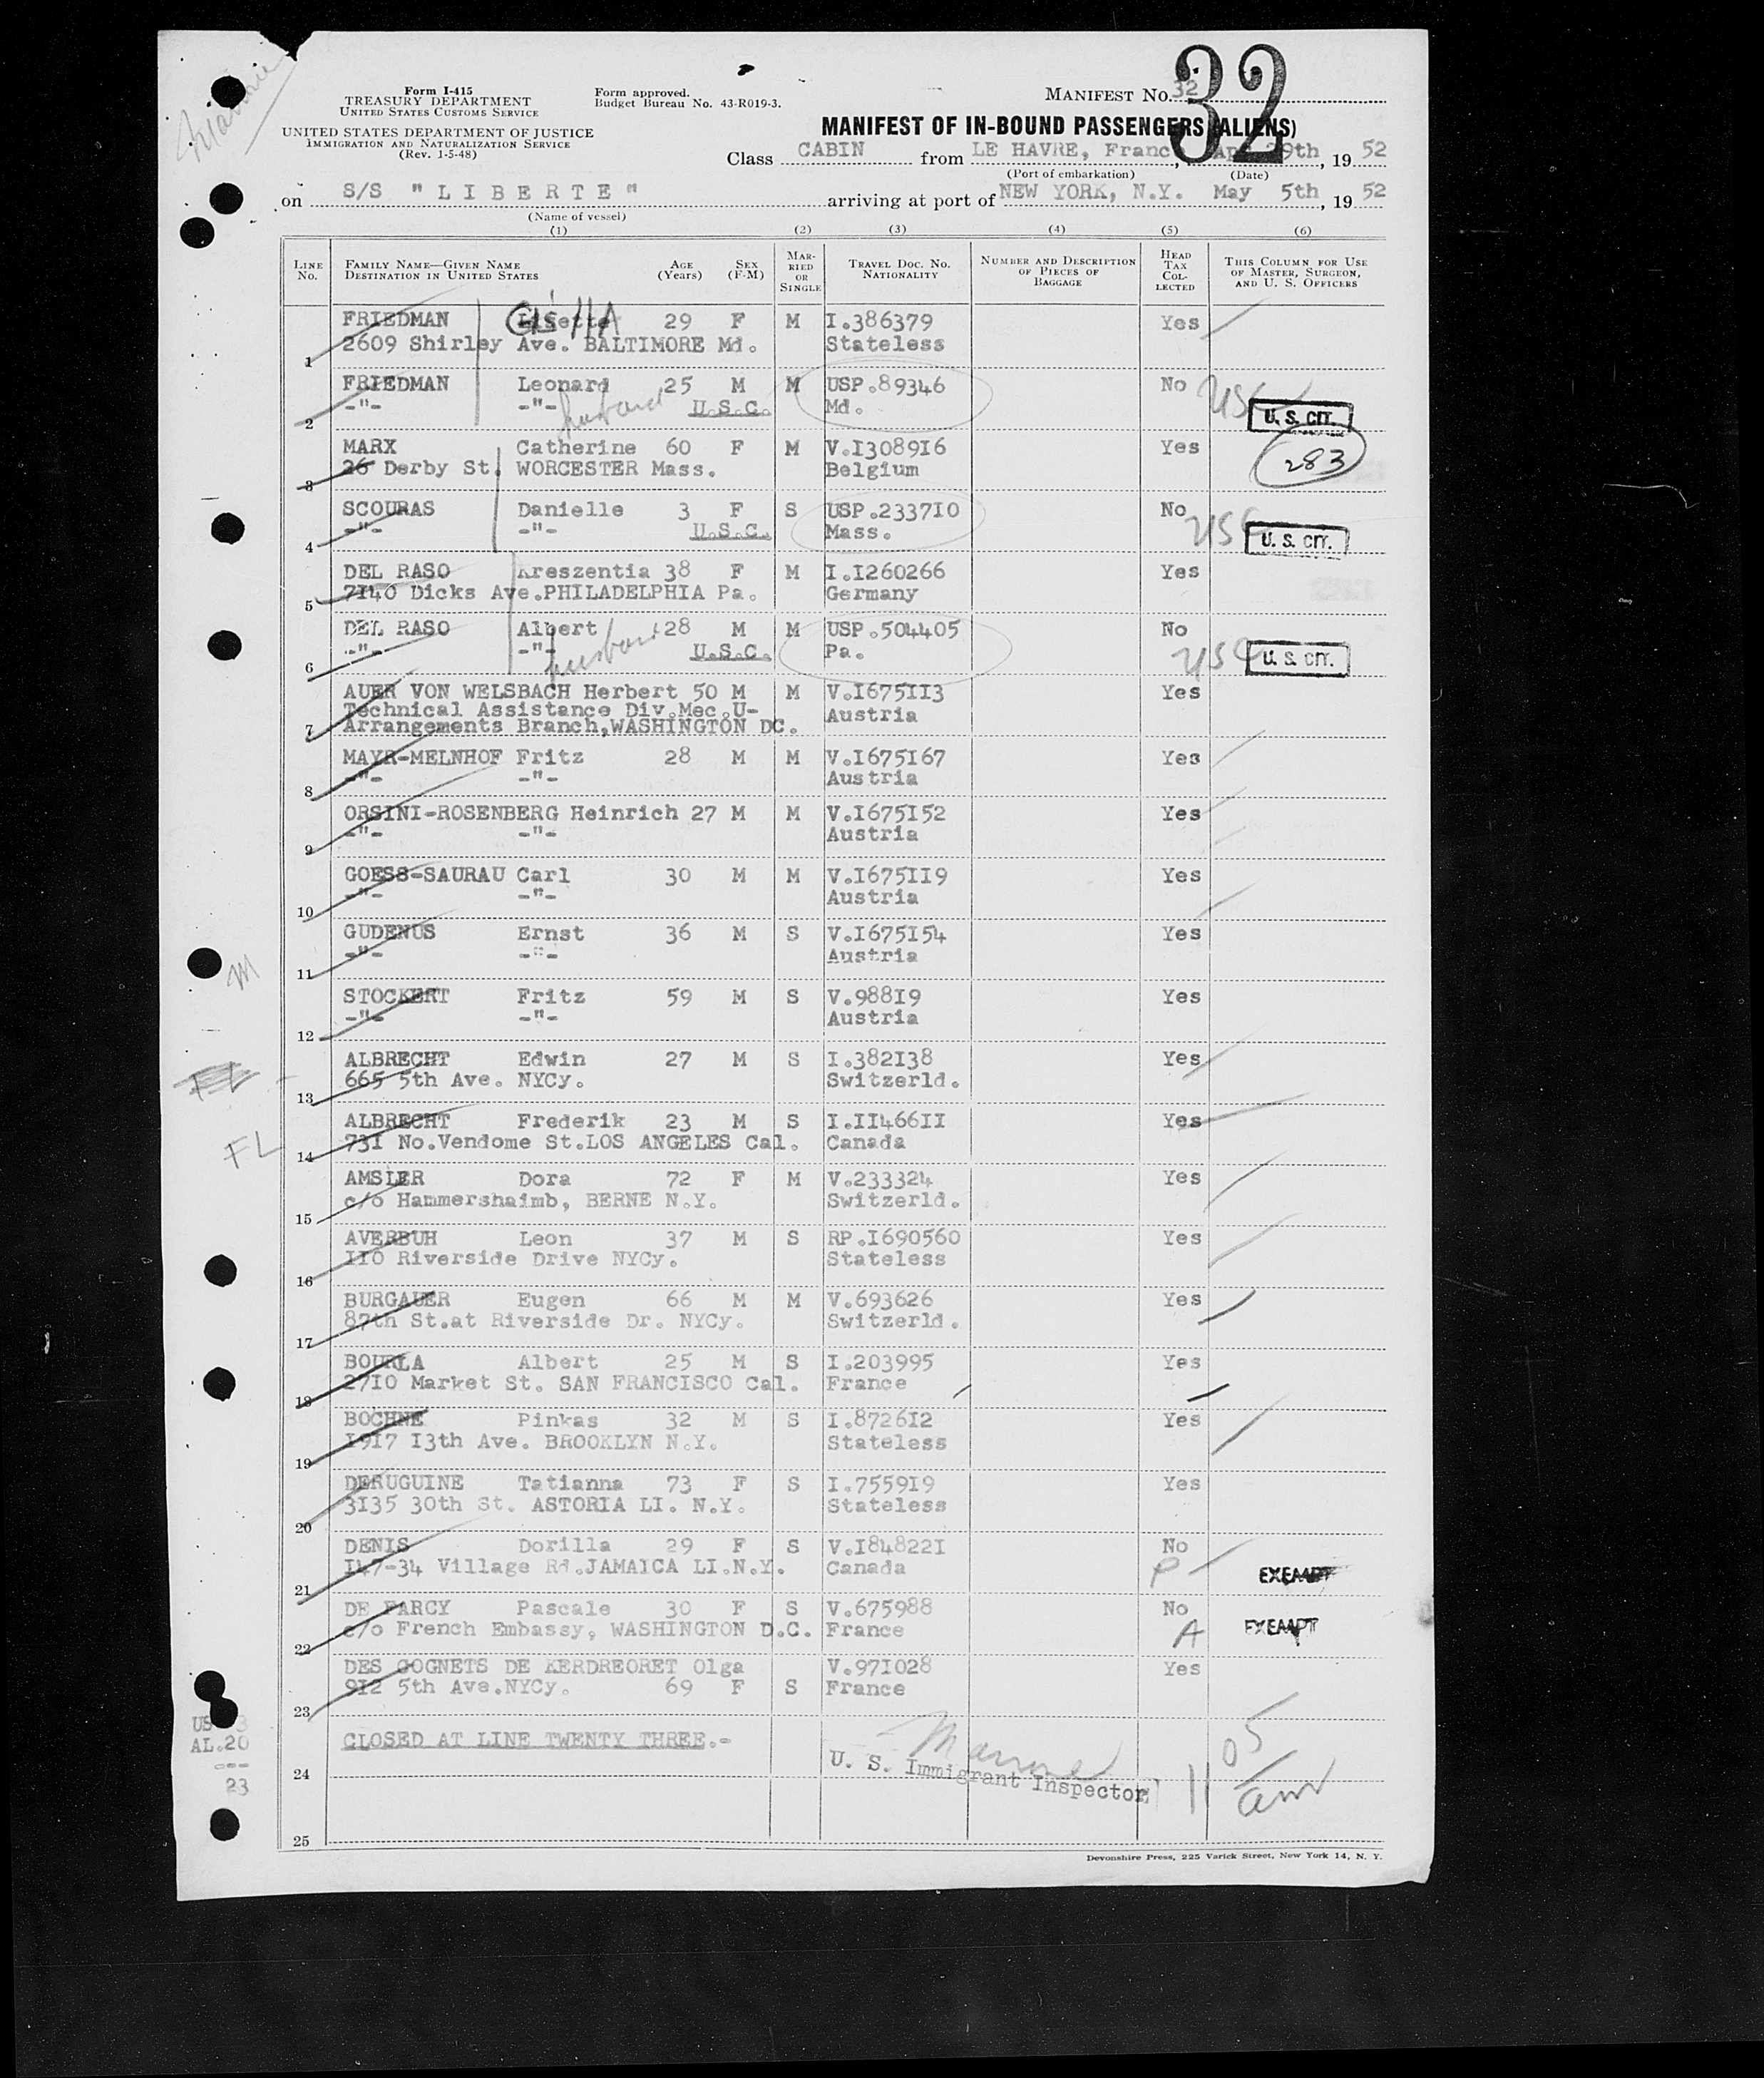 Form I-415
TREASURY DEPARTMENT
UNITED STATES CUSTOMS SERVICE
UNITED STATES DEPARTMENT OF JUSTICE
IMMIGRATION AND NATURALIZATION SERVICE
(Rev. 1-5-48)
Form approved.
Budget Bureau No. 43-R019-3.
MANIFEST No. 32
32
MANIFEST OF IN-BOUND PASSENGERS (ALIENS)
Class CABIN from LE HAVRE, France, Apr 29th, 19 52
(Port of embarkation) (Date)
on S/S "LIBERTE" arriving at port of NEW YORK, N.Y. May 5th, 19 52
(Name of vessel)
(1) (2) (3) (4) (5) (6)
LINE No. FAMILY NAME—GIVEN NAME DESTINATION IN UNITED STATES AGE (Years) SEX (F-M) MARRIED OR SINGLE TRAVEL DOC. No. NATIONALITY NUMBER AND DESCRIPTION OF PIECES OF BAGGAGE HEAD TAX COLLECTED THIS COLUMN FOR USE OF MASTER, SURGEON, AND U. S. OFFICERS
FRIEDMAN Lisette GISllA 29 F M I.386379 Yes
1 2609 Shirley Ave. BALTIMORE Md. Stateless
FRIEDMAN Leonard 25 M M USP.89346 No USC
2 -"- -"- husband U.S.C. Md. U. S. CIT.
MARX Catherine 60 F M V.I308916 Yes 283
3 26 Derby St. WORCESTER Mass. Belgium
SCOURAS Danielle 3 F S USP.233710 No USC
4 -"- -"- U.S.C. Mass. U. S. CIT.
DEL RASO Kreszentia 38 F M I.I260266 Yes
5 7140 Dicks Ave.PHILADELPHIA Pa. Germany
DEL RASO Albert 28 M M USP.504405 No
6 -"- -"- husband U.S.C. Pa. USC U. S. CIT.
AUER VON WELSBACH Herbert 50 M M V.I675II3 Yes
Technical Assistance Div.Mec.U- Austria
7 Arrangements Branch,WASHINGTON DC.
MAYR-MELNHOF Fritz 28 M M V.I675I67 Yes
8 -"- -"- Austria
ORSINI-ROSENBERG Heinrich 27 M M V.I675I52 Yes
9 -"- -"- Austria
GOESS-SAURAU Carl 30 M M V.I675II9 Yes
10 -"- -"- Austria
GUDENUS Ernst 36 M S V.I675I54 Yes
11 -"- -"- Austria
M
STOCKERT Fritz 59 M S V.988I9 Yes
12 -"- -"- Austria
ALBRECHT Edwin 27 M S I.382I38 Yes
13 665 5th Ave. NYCy. Switzerld.
ALBRECHT Frederik 23 M S I.II466II Yes
FL 14 73I No.Vendome St.LOS ANGELES Cal. Canada
AMSLER Dora 72 F M V.233324 Yes
15 c/o Hammershaimb, BERNE N.Y. Switzerld.
AVERBUH Leon 37 M S RP.I690560 Yes
16 II0 Riverside Drive NYCy. Stateless
BURGAUER Eugen 66 M M V.693626 Yes
17 87th St.at Riverside Dr. NYCy. Switzerld.
BOURLA Albert 25 M S I.203995 Yes
18 27I0 Market St. SAN FRANCISCO Cal. France
BOCHNE Pinkas 32 M S I.8726I2 Yes
19 I9I7 I3th Ave. BROOKLYN N.Y. Stateless
DERUGUINE Tatianna 73 F S I.7559I9 Yes
20 3I35 30th St. ASTORIA LI. N.Y. Stateless
DENIS Dorilla 29 F S V.I84822I No
21 I47-34 Village Rd.JAMAICA LI.N.Y. Canada P EXEMPT
DE FARCY Pascale 30 F S V.675988 No
22 c/o French Embassy, WASHINGTON D.C. France A EXEMPT
DES COGNETS DE KERDREORET Olga V.97I028 Yes
23 9I2 5th Ave.NYCy. 69 F S France
US 3
AL.20
---
23
CLOSED AT LINE TWENTY THREE.-
24 U. S. Immigrant Inspector 11 05 am
25
Devonshire Press, 225 Varick Street, New York 14, N. Y.